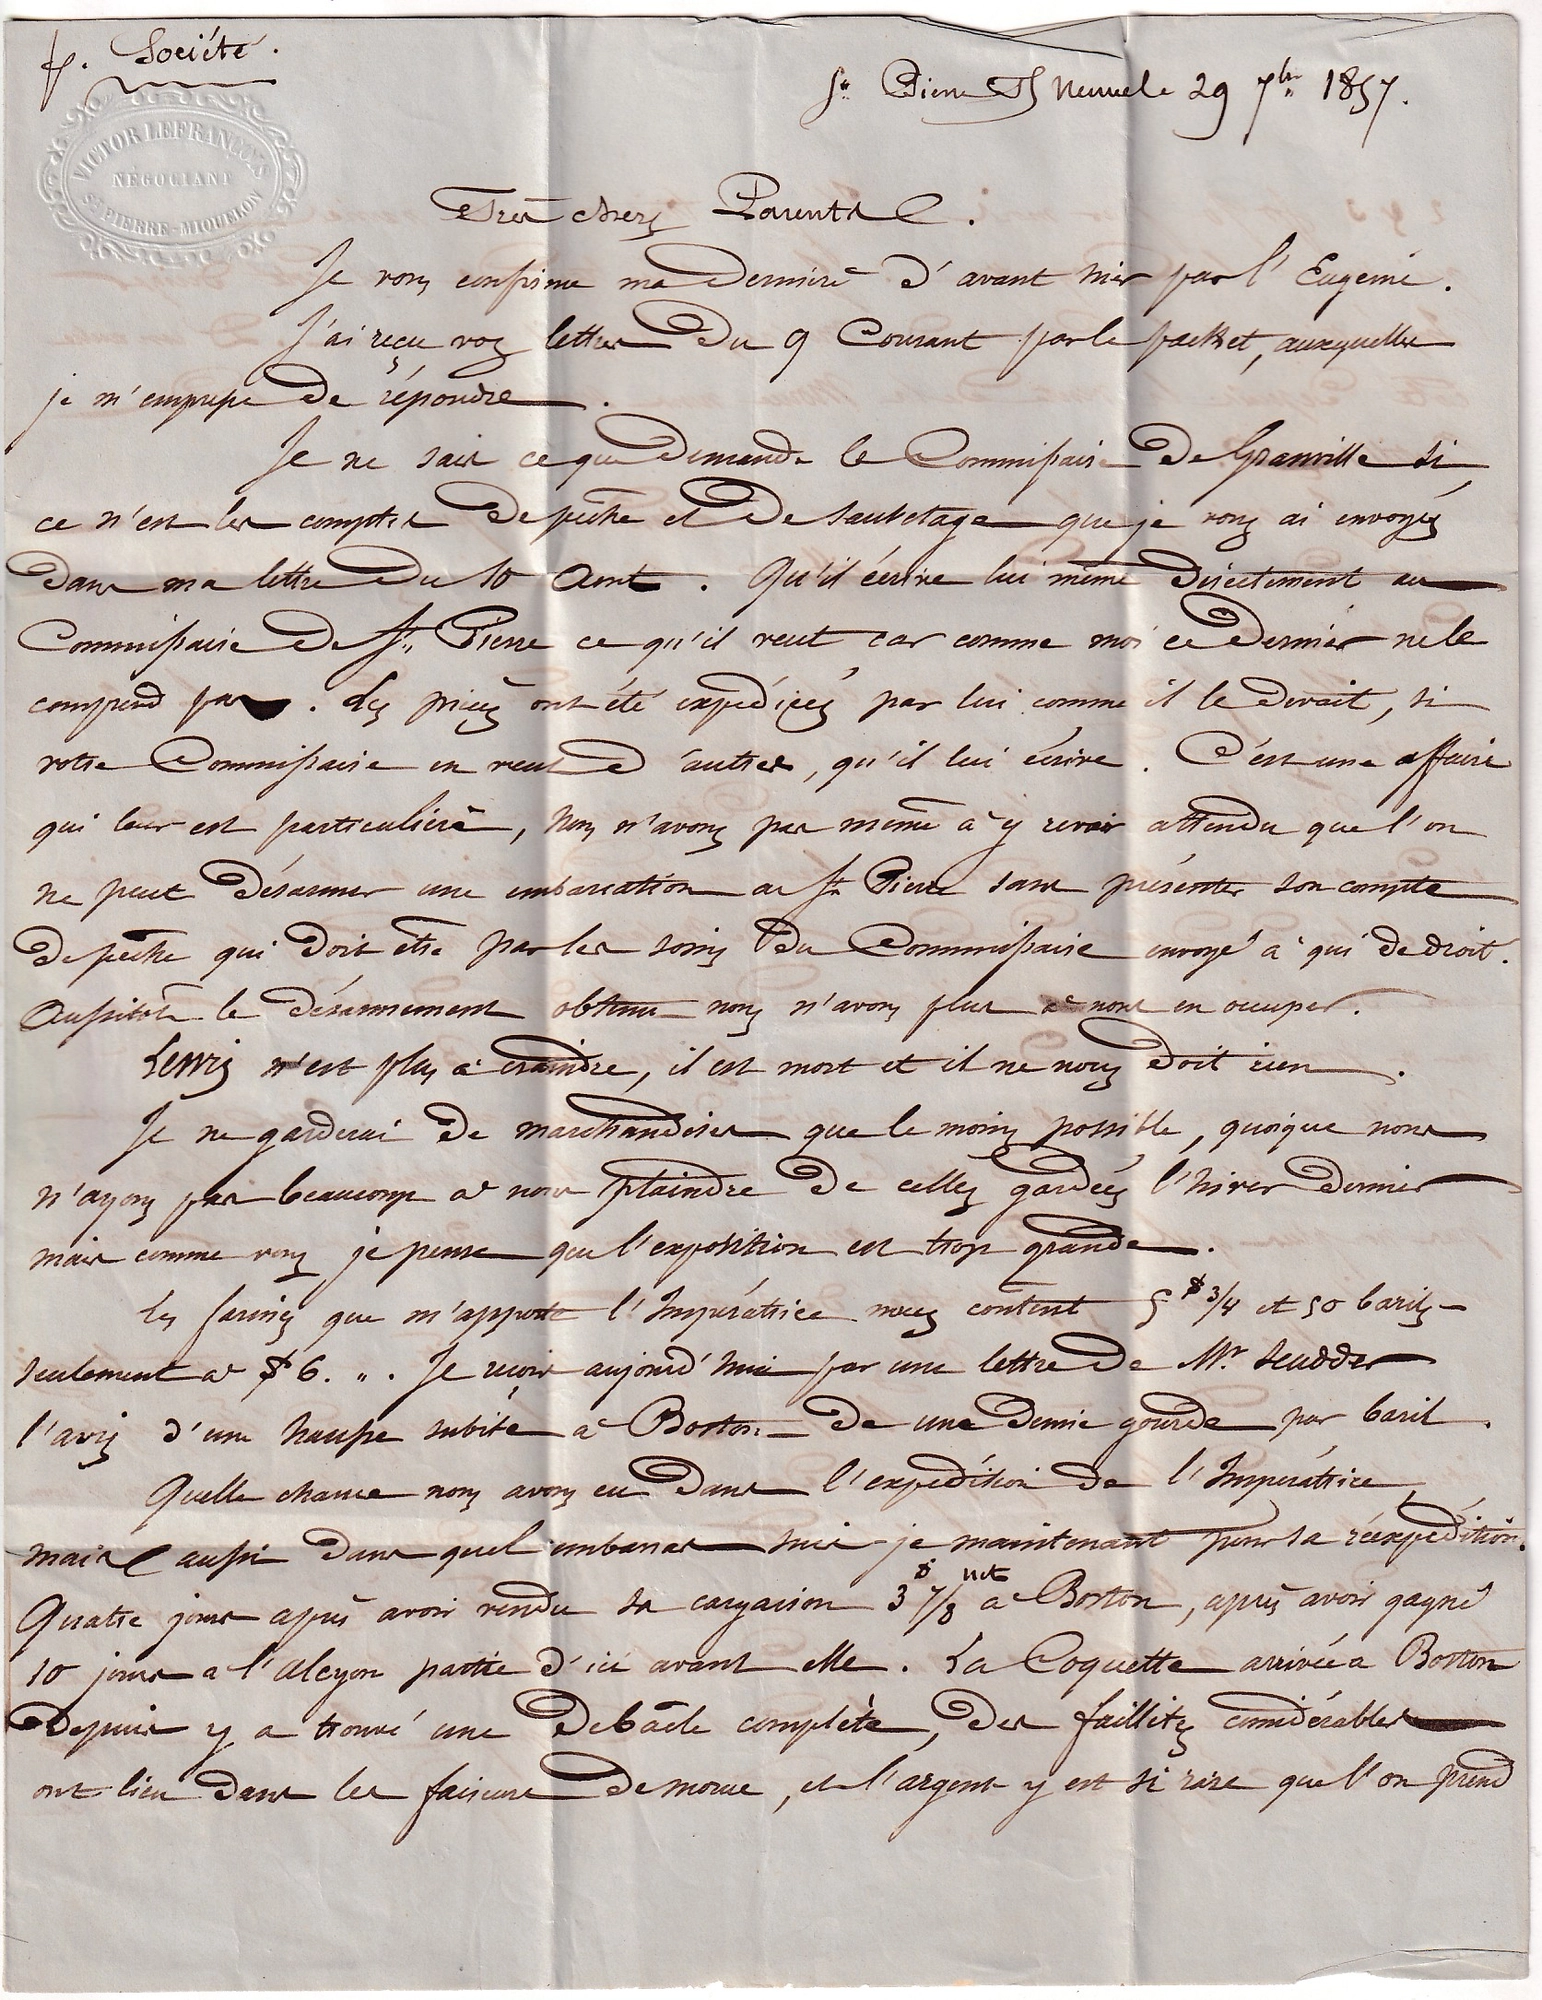 p. Société.
VICTOR LEFRANÇOIS
NÉGOCIANT
ST PIERRE-MIQUELON
St Pierre Terre Neuve le 29 7bre 1857.
Très chers Parents.
Je vous confirme ma dernière d'avant hier par l'Eugénie.
J'ai reçu vos lettres du 9 Courant par le packet, auxquelles
je m'empresse de répondre.
Je ne sais ce que demande le Commissaire de Granville si
ce n'est les comptes de pêche et de sauvetage que je vous ai envoyés
dans ma lettre du 10 Aout. Qu'il écrive lui même directement au
Commissaire de St Pierre ce qu'il veut car comme moi ce dernier ne le
comprend pas. Les pièces ont été expédiées par lui comme il le devait, si
votre Commissaire en veut d'autres, qu'il lui écrive. C'est une affaire
qui leur est particulière, nous n'avons pas même à y revoir attendu que l'on
ne peut désarmer une embarcation à St Pierre sans présenter son compte
de pêche qui doit être par les soins du Commissaire envoyé à qui de droit.
Aussitôt le désarmement obtenu nous n'avons plus à nous en occuper.
Lewis n'est plus à craindre, il est mort et il ne nous doit rien.
Je ne garderai de marchandises que le moins possible, quoique nous
n'ayons pas beaucoup à nous plaindre de celles gardées l'hiver dernier
mais comme vous je pense que l'exposition est trop grande.
Les farines que m'apporte l'Impératrice nous content 5 $ 3/4 et 50 barils
seulement à $ 6. „. Je reçois aujourd'hui par une lettre de Mr Scudder
l'avis d'une hausse subite à Boston de une demie gourde par baril.
Quelle chance nous avons eu dans l'expédition de l'Impératrice,
mais aussi dans quel embarras suis-je maintenant pour sa réexpédition.
Quatre jours après avoir vendu sa cargaison 3 $ 7/8 net à Boston, après avoir gagné
10 jours à l'Alcyon partie d'ici avant elle. La Coquette arrivée à Boston
depuis y a trouvé une debâcle complète, des faillites considérables
ont lieu dans les faiseurs de morue, et l'argent y est si rare que l'on prend